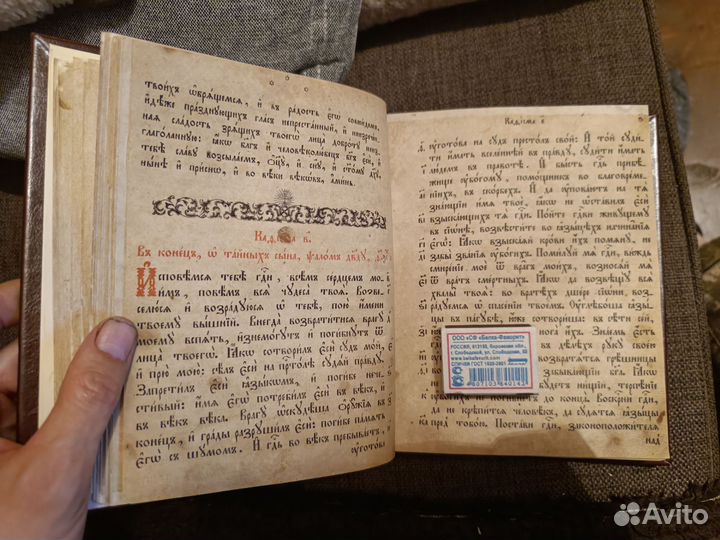 твоихъ ѡбрящемсѧ, и҆ въ радость є҆гѡ̀ совнидемъ,
и҆дѣже праздꙋющихъ гласъ непрестанный, и҆ неизречен
наѧ сладость зрѧщихъ твоегѡ̀ лица̀ добротꙋ̀ неизг
глаголаннꙋю: ꙗ҆́кѡ бл҃гъ и҆ человѣколюбецъ бг҃ъ є҆сѝ, и҆
тебѣ̀ славꙋ возсылаемъ, ѻ҆ц҃ꙋ̀, и҆ сн҃ꙋ, и҆ ст҃омꙋ дх҃ꙋ,
ны́нѣ и҆ при́снѡ, и҆ во вѣки вѣкѡ́въ, а҆ми́нь.
Каѳі́сма в҃.
Въ коне́цъ, ѡ҆ та́йныхъ сы́на, ѱало́мъ дв҃дꙋ,
И҆сповѣ́мсѧ тебѣ̀ гд҇и, всѣмъ се́рдцемъ мо
и҆́мъ, повѣ́мъ всѧ̑ чꙋдеса̀ твоѧ̑. Возве
селюсѧ и҆ возра́дꙋюсѧ ѡ҆ тебѣ̀, пою̀ и҆́мени
твоемꙋ̀ вы́шній. Внегда̀ возврати́тисѧ врагꙋ̀
моемꙋ̀ вспѧ́ть, и҆знемо́гꙋтъ и҆ поги́бнꙋтъ ѿ
лица̀ твоегѡ̀. Ꙗ҆́кѡ сотвори́лъ є҆сѝ сꙋ́дъ мо́й
и҆ прю̀ мою̀: сѣ́лъ є҆сѝ на прⷭ҇то́лѣ сꙋдѧ́й пра́вдꙋ.
Запрети́лъ є҆сѝ ꙗ҆зы́кѡмъ, и҆ поги́бе нече
сти́вый: и҆́мѧ є҆гѡ̀ потреби́лъ є҆сѝ въ вѣ́къ, и҆ въ
вѣ́къ вѣ́ка. Врагꙋ̀ ѡ҆скꙋдѣ́ша ѻ҆рꙋ̑жїѧ въ
коне́цъ, и҆ гра́ды разрꙋши́лъ є҆сѝ: поги́бе па́мѧть
є҆гѡ̀ съ шꙋ́момъ. И҆ гд҇ь во вѣ́къ пребыва́етъ,
ᲂу҆гото́ва
Каѳі́сма
ᲂу҆гото́ва на сꙋ́дъ престо́лъ сво́й: И҆ то́й сꙋди́
ти и҆́мать вселе́ннѣй въ пра́вдꙋ, сꙋди́ти и҆́мать
лю́демъ въ правотѣ̀. И҆ бы́сть гд҇ь прибѣ́
жище ᲂу҆бо́гомꙋ, помо́щникъ во благовре́ме
нїихъ, въ ско́рбехъ. И҆ да ᲂу҆пова́ютъ на тѧ̀
зна́ющїи и҆́мѧ твоѐ, ꙗ҆́кѡ не ѡ҆ста́вилъ є҆сѝ
взыска́ющихъ тѧ̀ гд҇и. По́йте гд҇ви живꙋ́щемꙋ
въ сїѡ́нѣ, возвѣсти́те во ꙗ҆зы́цѣхъ начина̑нїѧ
є҆гѡ̀: Ꙗ҆́кѡ взыска́ѧй крѡ́ви и҆́хъ помѧнꙋ̀, не
забы̀ зва́нїѧ ᲂу҆бо́гихъ. Поми́лꙋй мѧ̀ гд҇и, ви́ждь
смире́нїе моѐ ѿ вра̑гъ мои́хъ, вознося́й мѧ̀
ѿ вра́тъ сме́ртныхъ. Ꙗ҆́кѡ да возвѣщꙋ̀ всѧ̑
хвалы̑ твоѧ̑: во вратѣ́хъ дще́ре сїѡ́ни, воз
ра́дꙋемсѧ ѡ҆ спасе́нїи твое́мъ. Оу҆глѣбо́ша ꙗ҆зы́
цы въ па́гꙋбѣ, ю҆́же сотвори́ша: въ сѣ́ти се́й,
ноги̑ и҆́хъ. Зна́емь є҆́сть
дѣ́лехъ рꙋкꙋ̀ свое́ю
возвратѧ́тсѧ грѣ̑шницы
забыва́ющїи
бꙋ́детъ ни́щїй, терпѣ́нїе
не поги́бнетъ до конца̀. Воскр҇нѝ гд҇и,
да не крѣпи́тсѧ человѣ́къ, да сꙋ́дѧтсѧ ꙗ҆зы́цы
пред̾ тобо́ю. Поста́ви гд҇и, законоположи́телѧ
над̾
ООО «СФ «Белка-Фаворит»
РОССИЯ, 613150, Кировская обл.,
г. Слободской, ул. Слободская, 53
СПИЧКИ ГОСТ 1820-2001
Avito